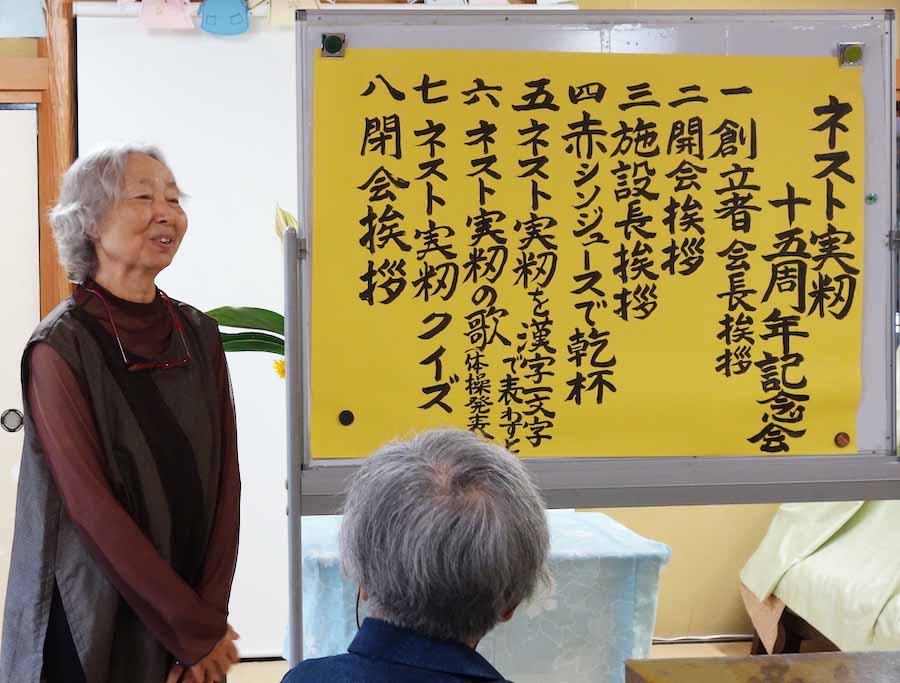 ネスト実籾
十五周年記念会
一 創立者会長挨拶
二 開会挨拶
三 施設長挨拶
四 赤シンジュースで乾杯
五 ネスト実籾を漢字一文字
で表わすと
六 ネスト実籾の歌(体操発表
七 ネスト実籾クイズ
八 閉会挨拶